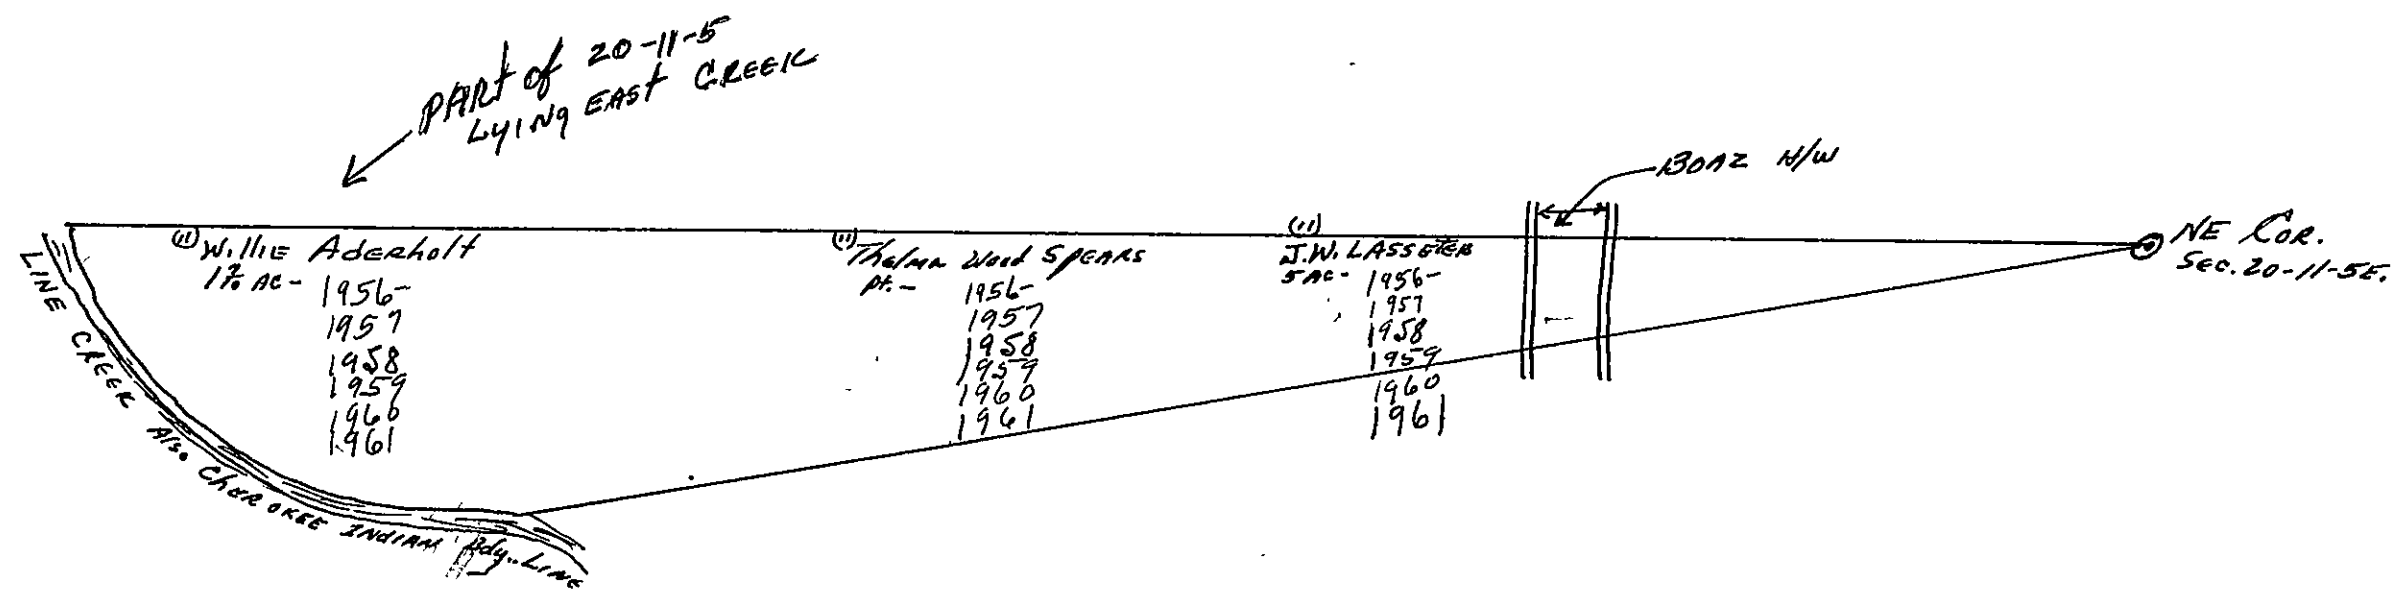 PART of 20-11-5
LYING EAST CREEK
BOAZ H/W
(11) Willie Aderholt
AC-
1956-
1957
1958
1959
1960
1961
(11) Thelma Wood SPEARS
Pt.-
1956-
1957
1958
1959
1960
1961
(11)
J.W. LASSETER
5 AC-
1956-
1957
1958
1959
1960
1961
NE COR.
SEC. 20-11-5E.
LINE CREEK Also CHEROKEE INDIAN Bdy. LINE